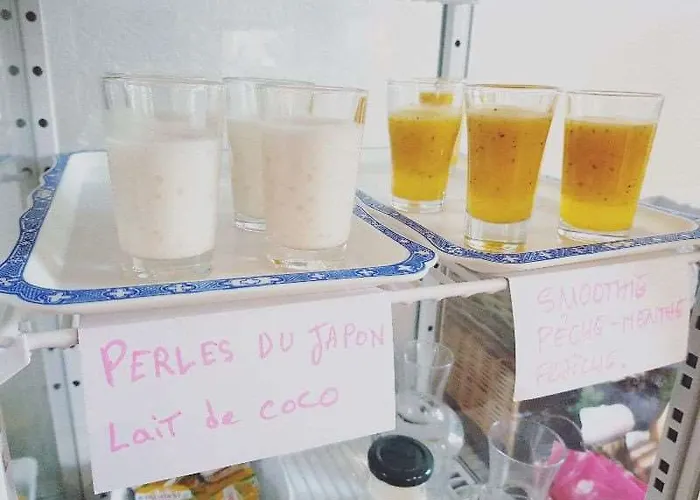 PERLES DU JAPON
LAIT de COCO
SMOOTHIE
PÊCHE-MENTHE
FRAÎCHE.